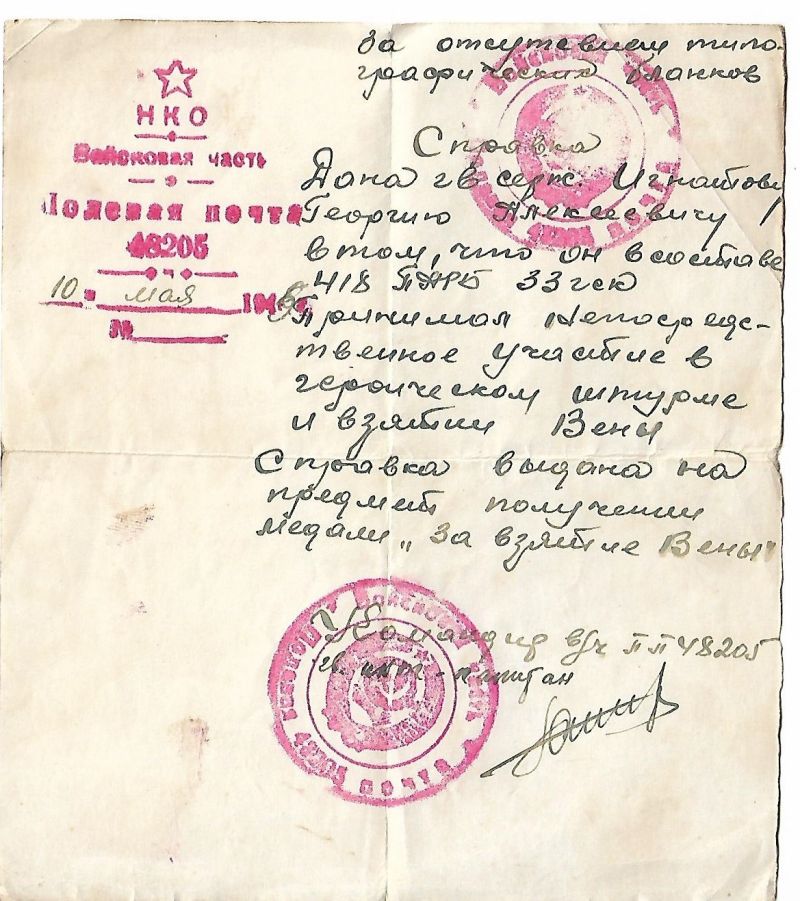 За отсутствием типо-
графических бланков
НКО
Войсковая часть
Полевая почта
48205
10 мая 194
№
Справка
Дана гв серж. Игнатову
Георгию Алексеевичу
в том, что он в составе
418 ПАРБ 33 гск
Принимал непосредс-
твенное участие в
героическом штурме
и взятии Вены
Справка выдана на
предмет получении
медали „За взятие Вены"
Командир в/ч ПП 48205
гв. инт-капитан
Войсковая часть
Полевая почта 48205